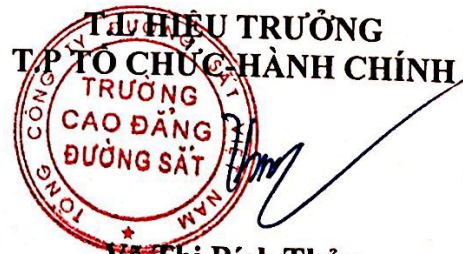 T.L HIỆU TRƯỞNG
T.P TỔ CHỨC-HÀNH CHÍNH
TỔNG CÔNG TY ĐƯỜNG SẮT VIỆT NAM
TRƯỜNG
CAO ĐẲNG
ĐƯỜNG SẮT
Thị Bích